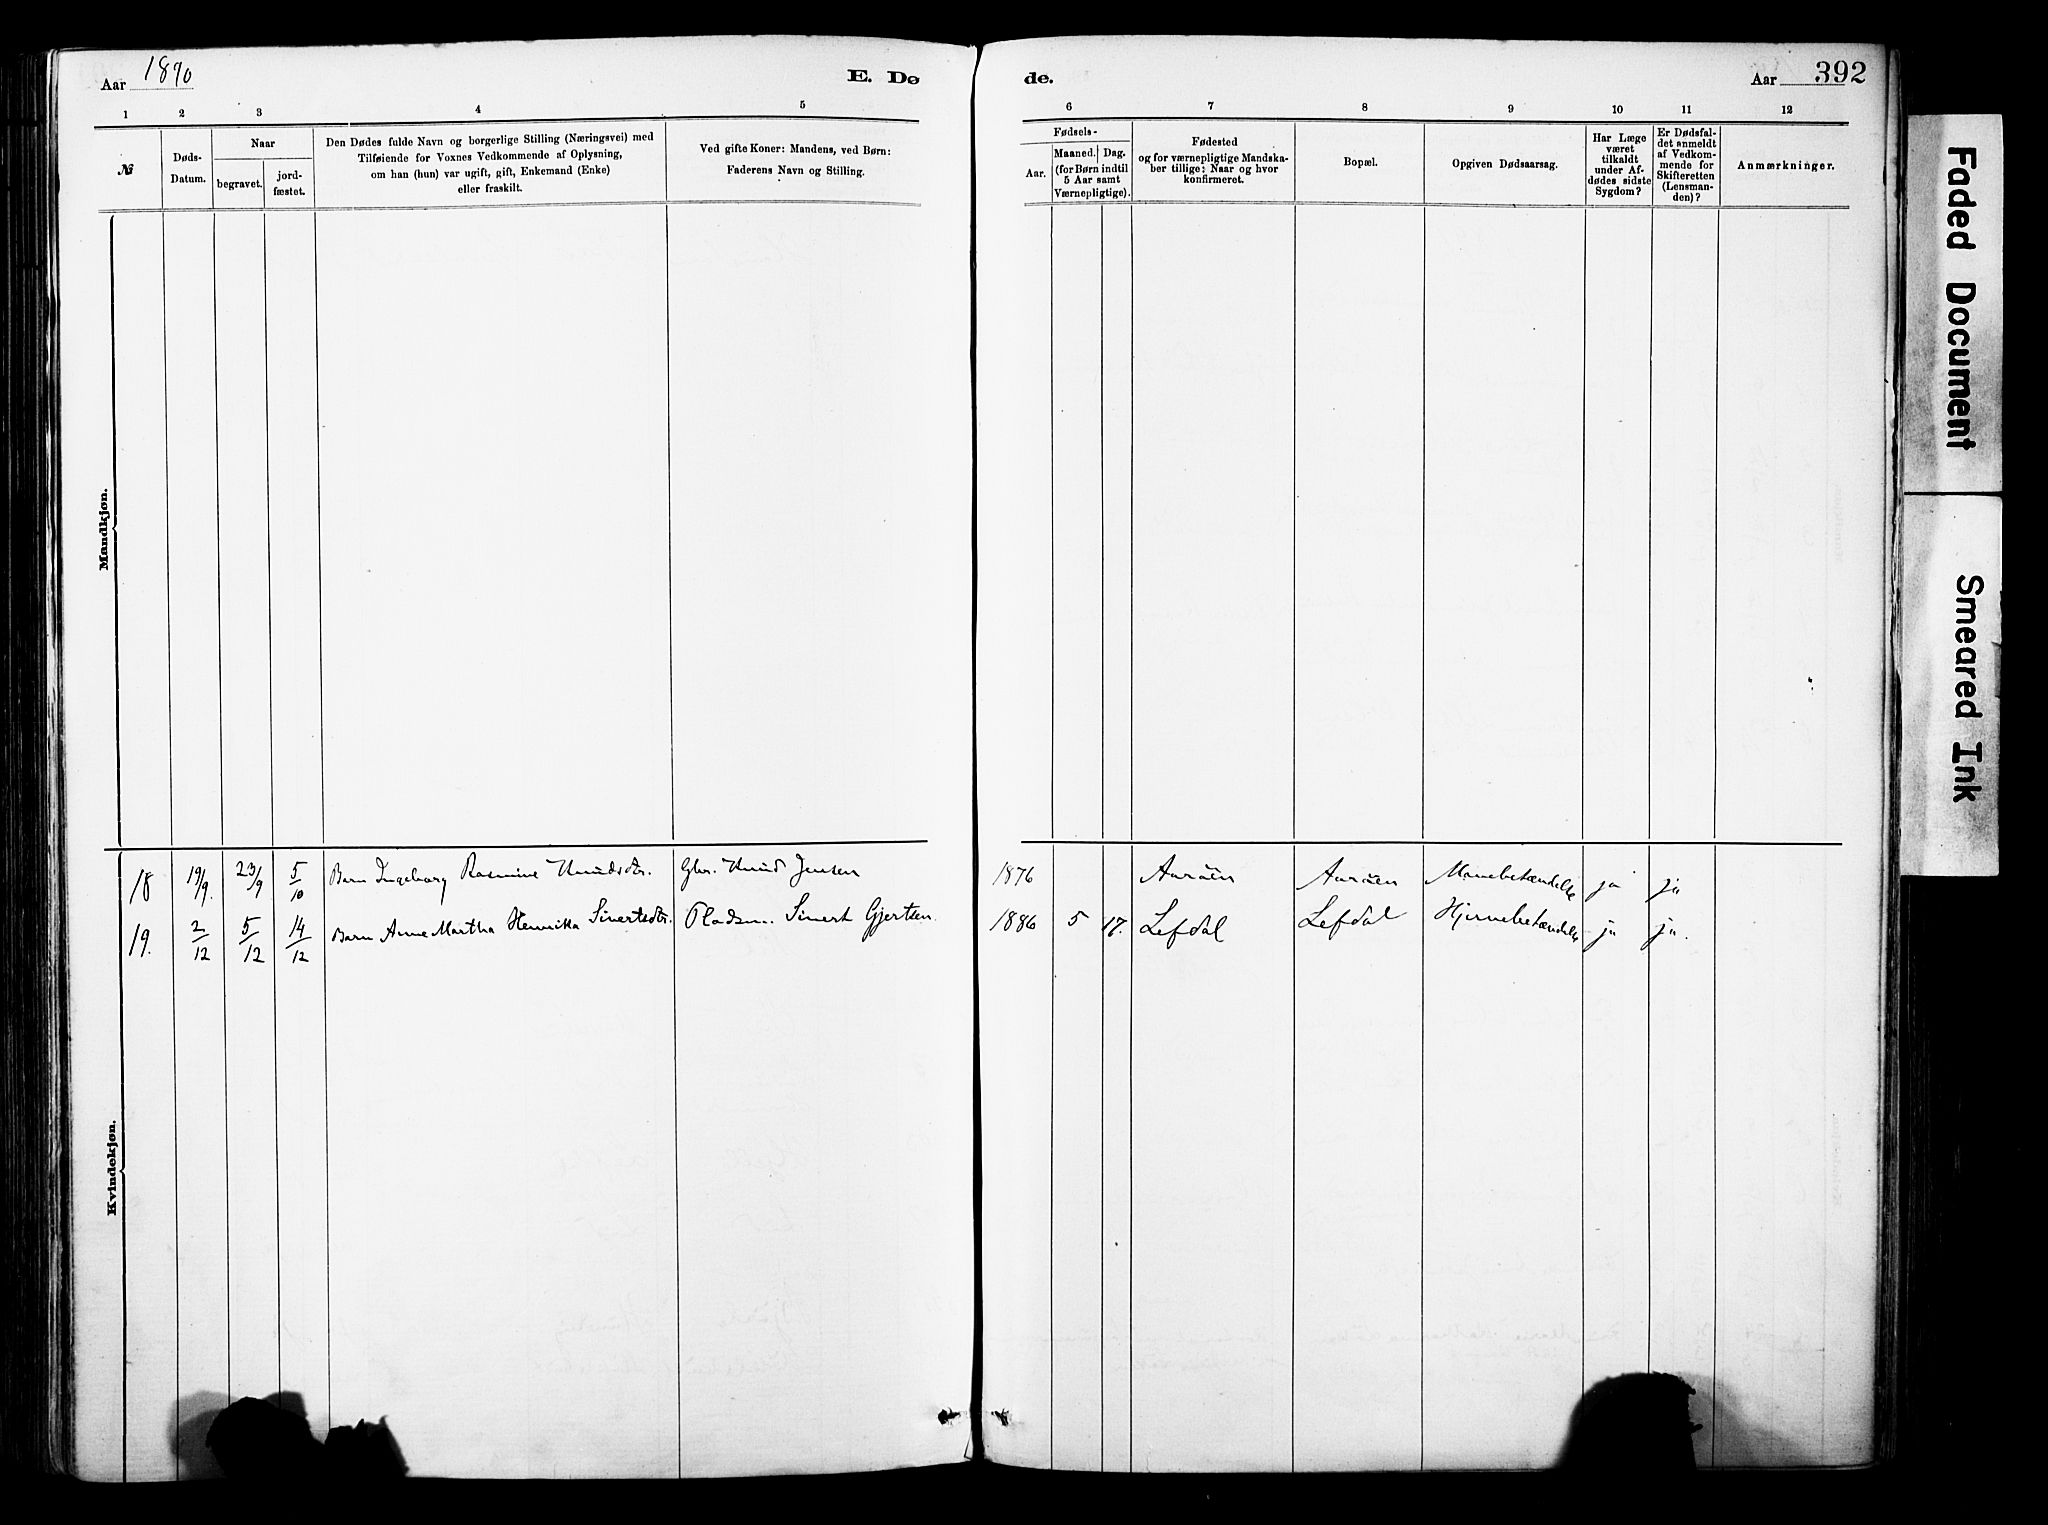 Aar 1890
E. Dø
de.
Aar 392
1 2 3 4 5
6 7 8 9 10 11 12
№
Døds-
Datum.
Naar
begravet.
jord-
fæstet.
Den Dødes fulde Navn og borgerlige Stilling (Næringsvei) med
Tilføiende for Voxnes Vedkommende af Oplysning,
om han (hun) var ugift, gift, Enkemand (Enke)
eller fraskilt.
Ved gifte Koner: Mandens, ved Børn:
Faderens Navn og Stilling.
Fødsels-
Aar.
Maaned. Dag.
(for Børn indtil
5 Aar samt
Værnepligtige).
Fødested
og for værnepligtige Mandska-
ber tillige: Naar og hvor
konfirmeret.
Bopæl.
Opgiven Dødsaarsag.
Har Læge
været
tilkaldt
under Af-
dødes sidste
Sygdom?
Er Dødsfal-
det anmeldt
af Vedkom-
mende for
Skifteretten
(Lensman-
den)?
Anmærkninger.
Mandkjøn.
Kvindekjøn.
18 19/9. 23/9 5/10 Barn Ingeborg Rasmine Knudsdtr. Gbr. Knud Jensen 1876 Aarøen Aarøen Mavebetændelse ja ja
19. 2/12 5/12 14/12 Barn Anne Martha Henrikka Sivertsdtr. Pladsm. Sivert Gjertsen. 1886 5 17. Lefdal Lefdal Hjernebetændelse ja ja.
Faded Document
Smeared Ink